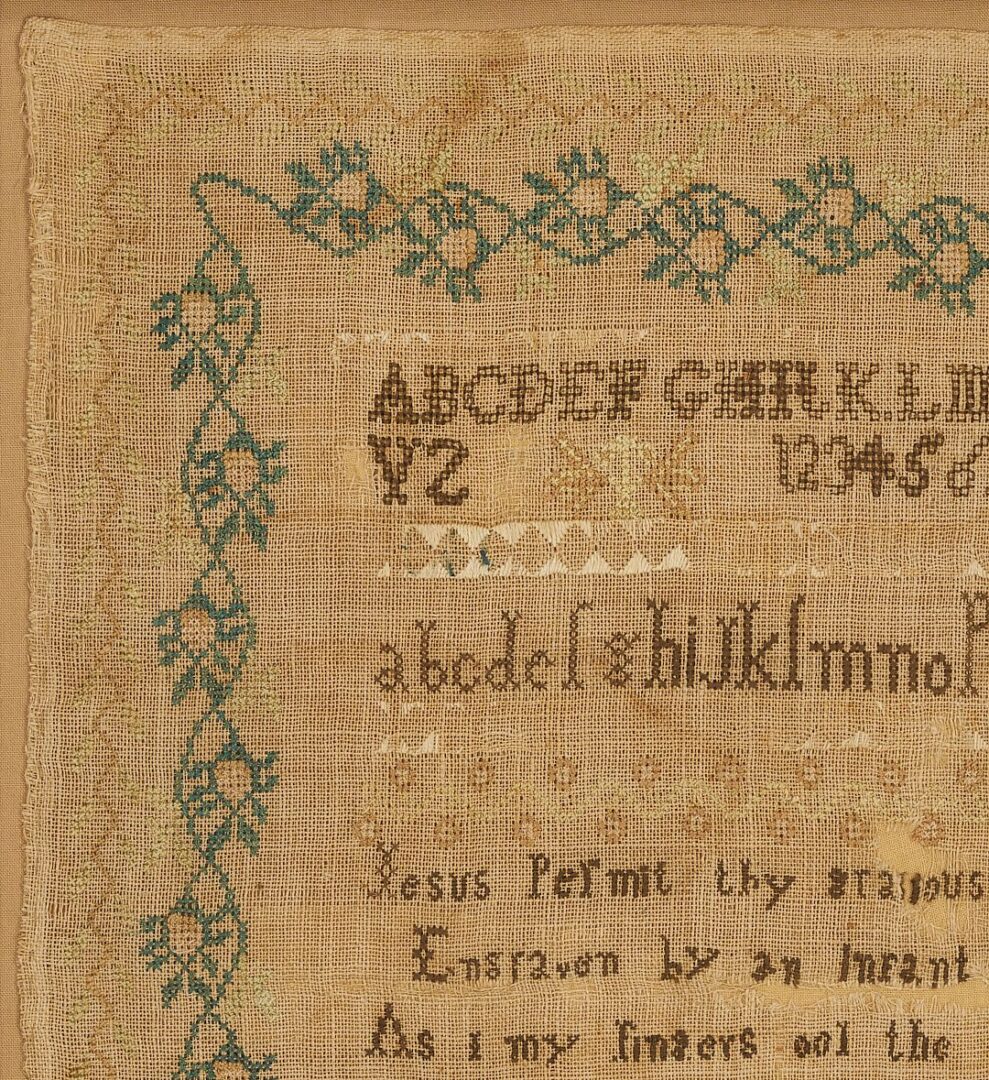 ABCDEF GHIKLM
YZ 12345 6
abcdefghijklmnop
Jesus Permit thy gracious
Engraven by an Infant
As i my fingers ool the